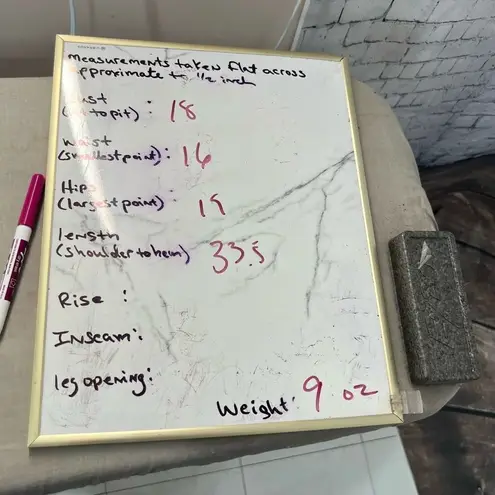 measurements taken flat across
approximate to 1/2 inch
ust
to pit) : 18
waist
(smallest point) : 16
Hips
(largest point) : 19
length
(shoulder to hem) 33.5
Rise :
Inseam :
leg opening :
Weight : 9 oz